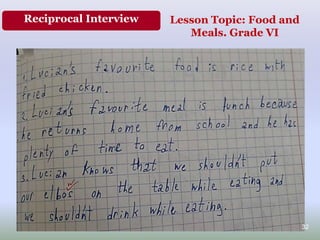 Reciprocal Interview
Lesson Topic: Food and
Meals. Grade VI
1. Lucian's favourite food is rice with
fried chicken.
2. Lucian's favourite meal is lunch because
he returns home from school and he has
plenty of time to eat.
3. Lucian knows that we shouldn't put
our elbos on the table while eating and
we shouldn't drink while eating.
32